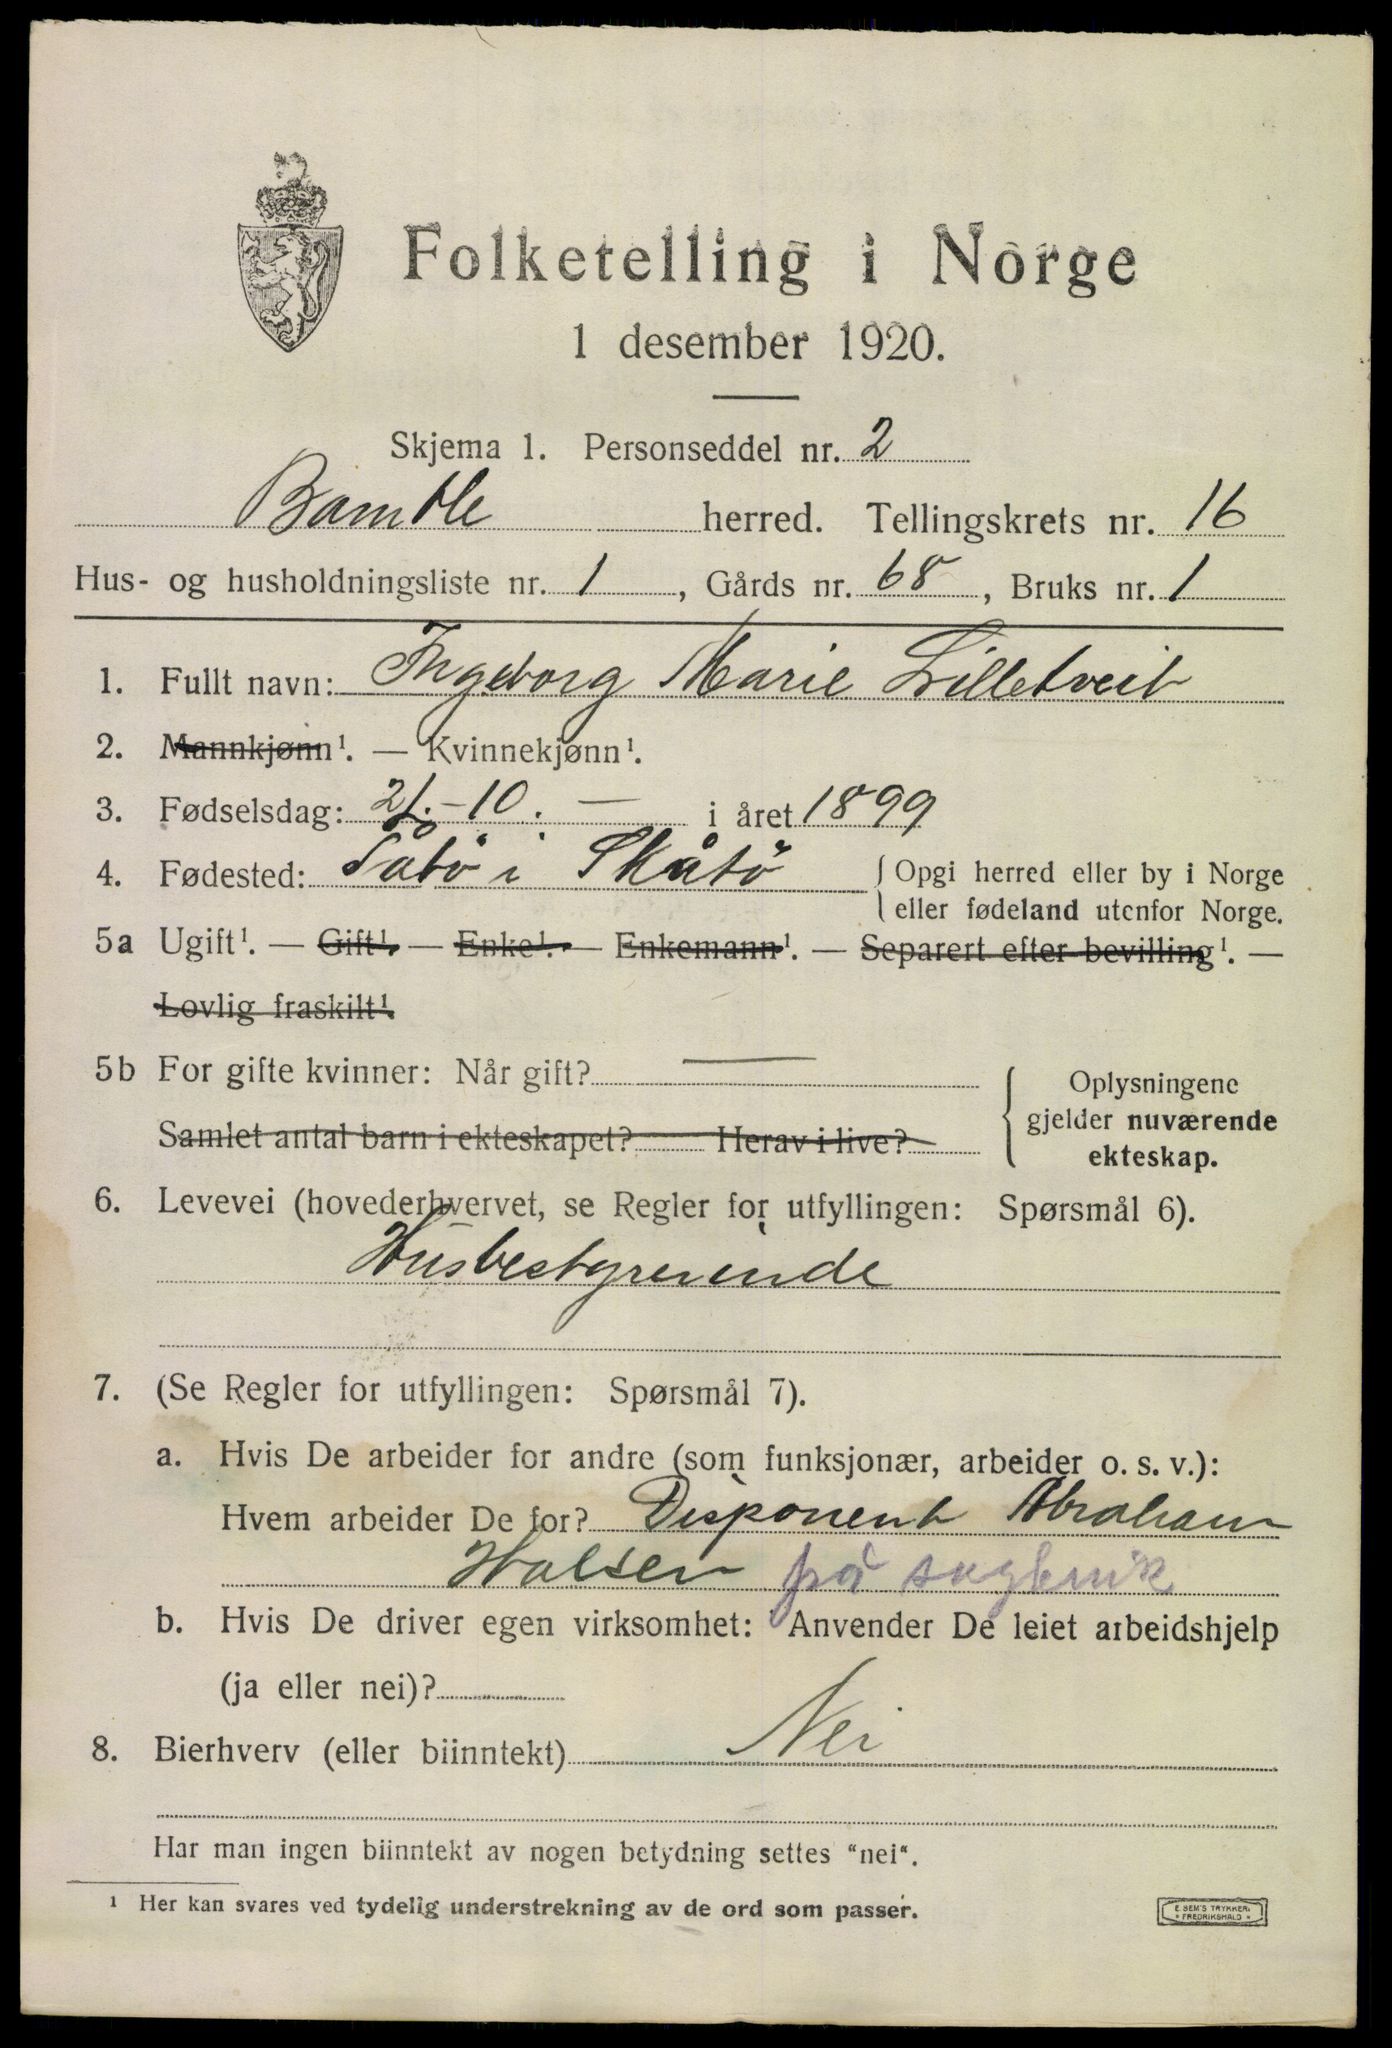 Folketelling i Norge
1 desember 1920.
Skjema 1. Personseddel nr. 2
Bamble herred. Tellingskrets nr. 16
Hus- og husholdningsliste nr. 1, Gårds nr. 68, Bruks nr. 1
1. Fullt navn: Ingeborg Marie Lilletveit
2. Mannkjønn¹. — Kvinnekjønn¹.
3. Fødselsdag: 21.-10. — i året 1899
4. Fødested: Tåtö i Skåtö
{ Opgi herred eller by i Norge
eller fødeland utenfor Norge.
5a Ugift¹. — Gift¹. — Enke¹. — Enkemann¹. — Separert efter bevilling¹. —
Lovlig fraskilt¹.
5b For gifte kvinner: Når gift? —
Samlet antal barn i ekteskapet? Herav i live?
{ Oplysningene
gjelder nuværende
ekteskap.
6. Levevei (hovederhvervet, se Regler for utfyllingen: Spørsmål 6).
Husbestyrerinde
7. (Se Regler for utfyllingen: Spørsmål 7).
a. Hvis De arbeider for andre (som funksjonær, arbeider o. s. v.):
Hvem arbeider De for? Disponent Abraham
Halsen på sagbruk
b. Hvis De driver egen virksomhet: Anvender De leiet arbeidshjelp
(ja eller nei)?
8. Bierhverv (eller biinntekt) Nei
Har man ingen biinntekt av nogen betydning settes "nei".
¹ Her kan svares ved tydelig understrekning av de ord som passer.
E. SEM'S TRYKKERI
* FREDRIKSHALD *